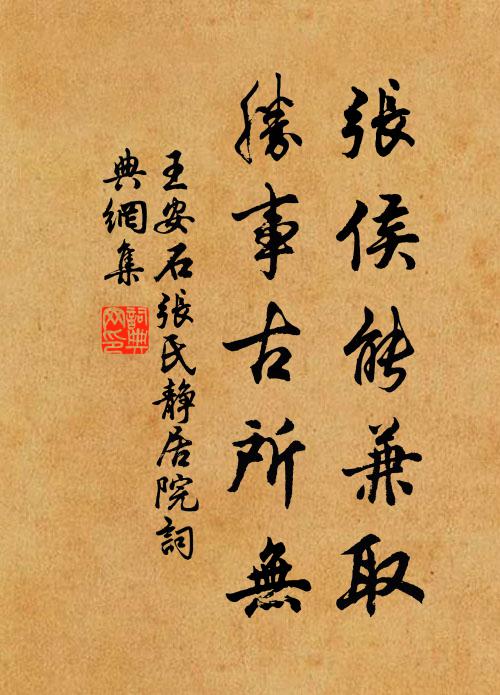 張侯能兼取
勝事古所無
王安石張氏靜居院詞
典網集
詞典網印